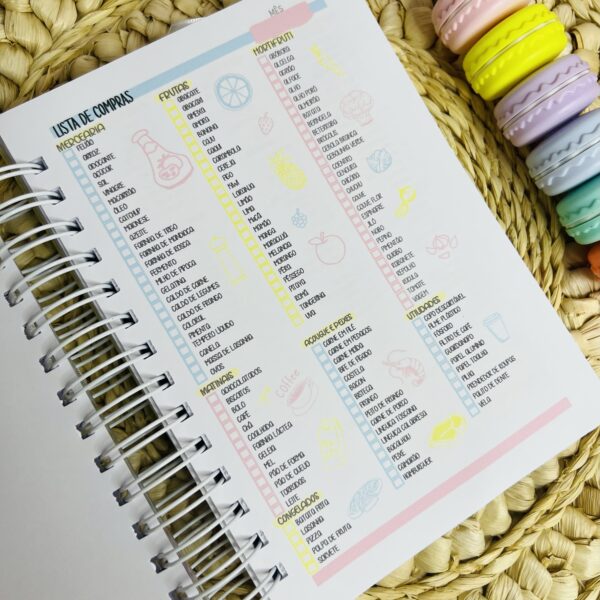 MÊS
LISTA DE COMPRAS
MERCEARIA
FEIJÃO
ARROZ
ADOÇANTE
AÇÚCAR
SAL
VINAGRE
MACARRÃO
ÓLEO
KATCHUP
MAIONESE
AZEITE
FARINHA DE TRIGO
FARINHA DE MANDIOCA
FARINHA DE ROSCA
FERMENTO
MILHO DE PIPOCA
GELATINA
CALDO DE CARNE
CALDO DE LEGUMES
CALDO DE FRANGO
COLORAL
PIMENTA
TEMPERO LÍQUIDO
CANELA
MASSA DE LASANHA
OVOS
MATINAIS
ACHOCOLATADOS
BISCOITOS
BOLO
CAFÉ
CHÁ
COALHADA
FARINHA LÁCTEA
GELEIA
MEL
PÃO DE FORMA
PÃO DE QUEIJO
TORRADAS
LEITE
CONGELADOS
BATATA FRITA
LASANHA
PIZZA
POLPA DE FRUTA
SORVETE
FRUTAS
ABACATE
ABACAXI
AMEIXA
AMORA
BANANA
CAJÚ
CAQUI
CARAMBOLA
CEREJA
FIGO
KIWI
LARANJA
LIMÃO
LIMA
MAÇÃ
MAMÃO
MANGA
MARACUJÁ
MELANCIA
MORANGO
PERA
PÊSSEGO
PITAYA
ROMÃ
TANGERINA
UVA
AÇOUGUE E PEIXES
CARNE EM FILÉ
CARNE EM PEDAÇOS
CARNE MOÍDA
BIFE DE FÍGADO
COSTELA
BACON
BISTECA
FRANGO
PEITO DE FRANGO
CARNE DE PORCO
LINGUIÇA TOSCANA
LINGUIÇA CALABRESA
BACALHAU
PEIXE
CAMARÃO
HAMBURGUER
Coffee
HORTIFRUTI
ABÓBORA
ACELGA
AGRIÃO
ALFACE
ALHO
ALHO PORÓ
ALMEIRÃO
BATATA
BERINJELA
BETERRABA
BRÓCOLIS
CEBOLA BRANCA
CEBOLINHA VERDE
COENTRO
CENOURA
CHICÓRIA
CHUCHU
COUVE
COUVE FLOR
ESPINAFRE
JILÓ
NABO
PEPINO
PIMENTÃO
QUIABO
RABANETE
REPOLHO
RÚCULA
TOMATE
VAGEM
UTILIDADES
COPO DESCARTÁVEL
FILME PLÁSTICO
FÓSFORO
FILTRO DE CAFÉ
GUARDANAPO
PAPEL ALUMÍNIO
PAPEL TOALHA
PILHA
PRENDEDOR DE ROUPAS
PALITO DE DENTE
VELA